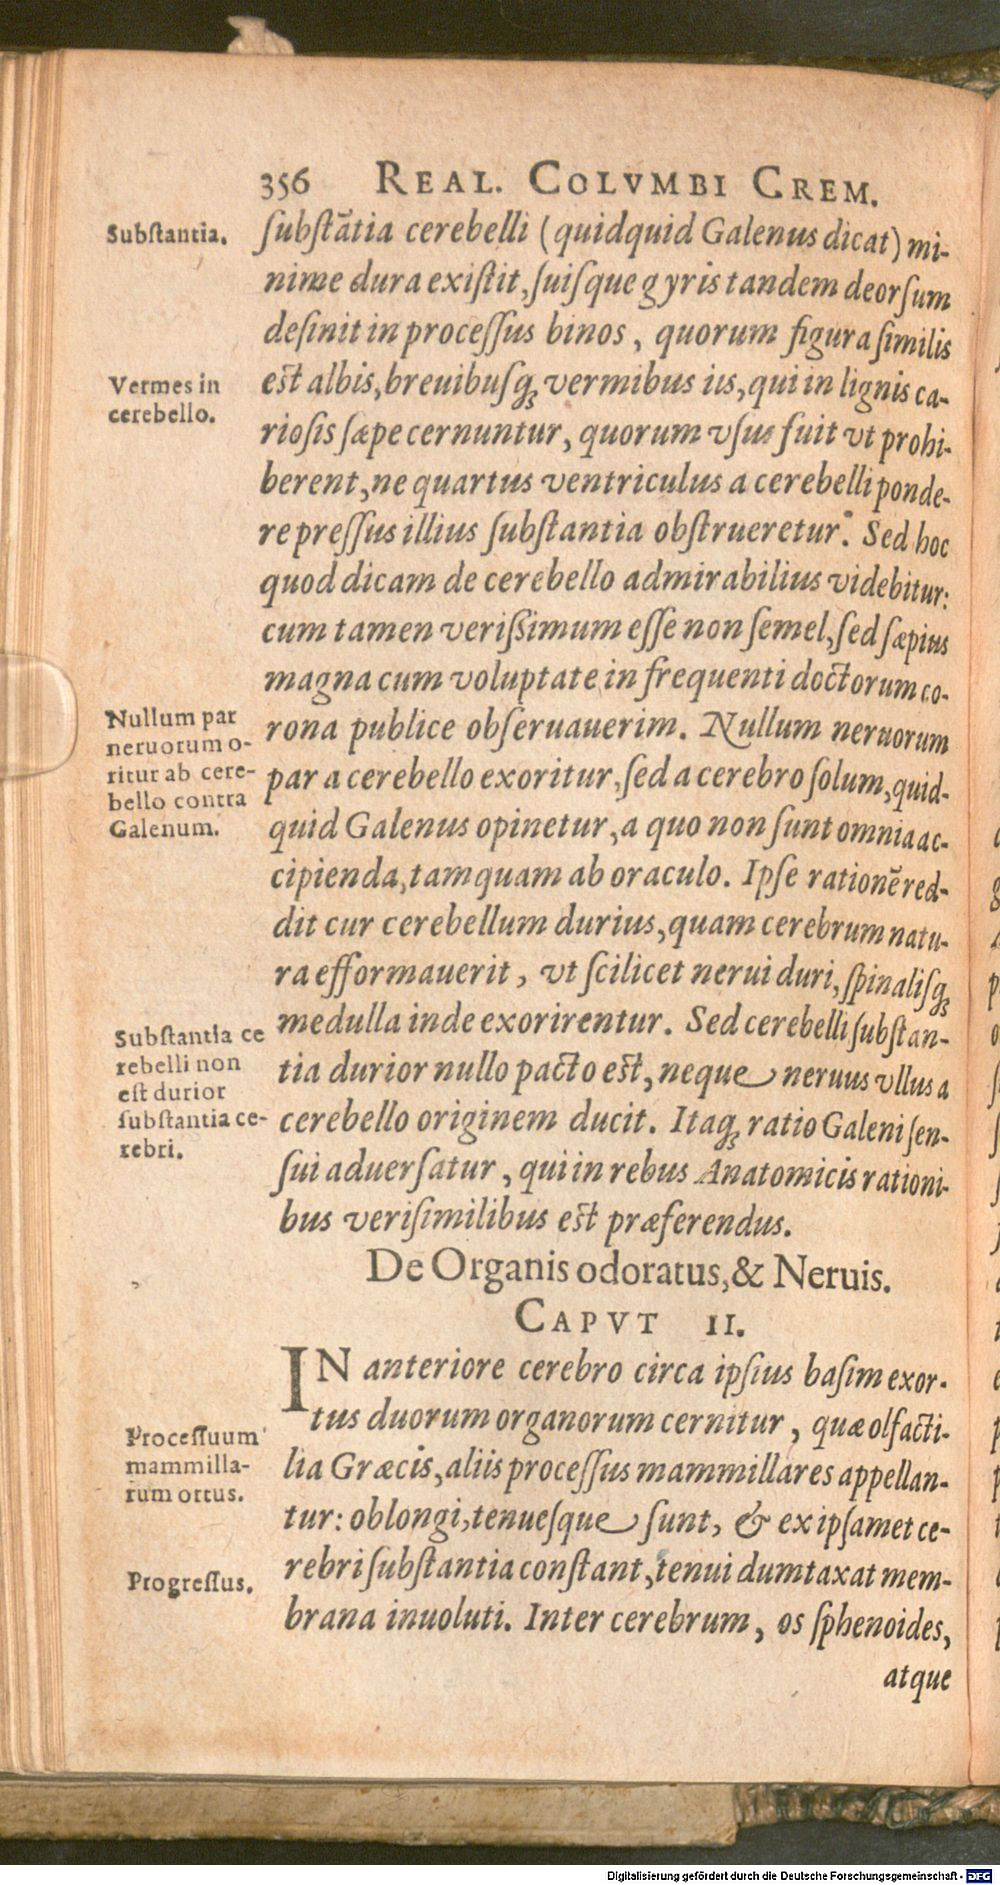 356 REAL. COLVMBI CREM.
Substantia.
ſubſtãtia cerebelli (quidquid Galenus dicat) mi-
nime dura exiſtit, ſuiſque gyris tandem deorſum
deſinit in proceſſus binos, quorum figura ſimilis
Vermes in
cerebello.
eſt albis, breuibuſq; vermibus iis, qui in lignis ca-
rioſis ſæpe cernuntur, quorum vſus fuit vt prohi-
berent, ne quartus ventriculus a cerebelli ponde-
re preſſus illius ſubſtantia obſtrueretur. Sed hoc
quod dicam de cerebello admirabilius videbitur:
cum tamen verißimum eſſe non ſemel, ſed ſæpius
magna cum voluptate in frequenti doctorum co-
Nullum par
neruorum o-
ritur ab cere-
bello contra
Galenum.
rona publice obſeruauerim. Nullum neruorum
par a cerebello exoritur, ſed a cerebro ſolum, quid-
quid Galenus opinetur, a quo non ſunt omnia ac-
cipienda, tamquam ab oraculo. Ipſe rationẽ red-
dit cur cerebellum durius, quam cerebrum natu-
ra efformauerit, vt ſcilicet nerui duri, ſpinaliſq;
Subſtantia ce
rebelli non
eſt durior
ſubſtantia ce-
rebri.
medulla inde exorirentur. Sed cerebelli ſubſtan-
tia durior nullo pacto eſt, neque neruus vllus a
cerebello originem ducit. Itaq; ratio Galeni ſen-
ſui aduerſatur, qui in rebus Anatomicis rationi-
bus veriſimilibus eſt præferendus.
De Organis odoratus, & Neruis.
CAPVT II.
IN anteriore cerebro circa ipſius baſim exor-
tus duorum organorum cernitur, quæ olfacti-
Proceſſuum
mammilla-
rum ortus.
lia Græcis, aliis proceſſus mammillares appellan-
tur: oblongi, tenueſque ſunt, & ex ipſamet ce-
rebri ſubſtantia conſtant, tenui dumtaxat mem-
Progreſſus.
brana inuoluti. Inter cerebrum, os ſphenoides,
atque
Digitalisierung gefördert durch die Deutsche Forschungsgemeinschaft - DFG